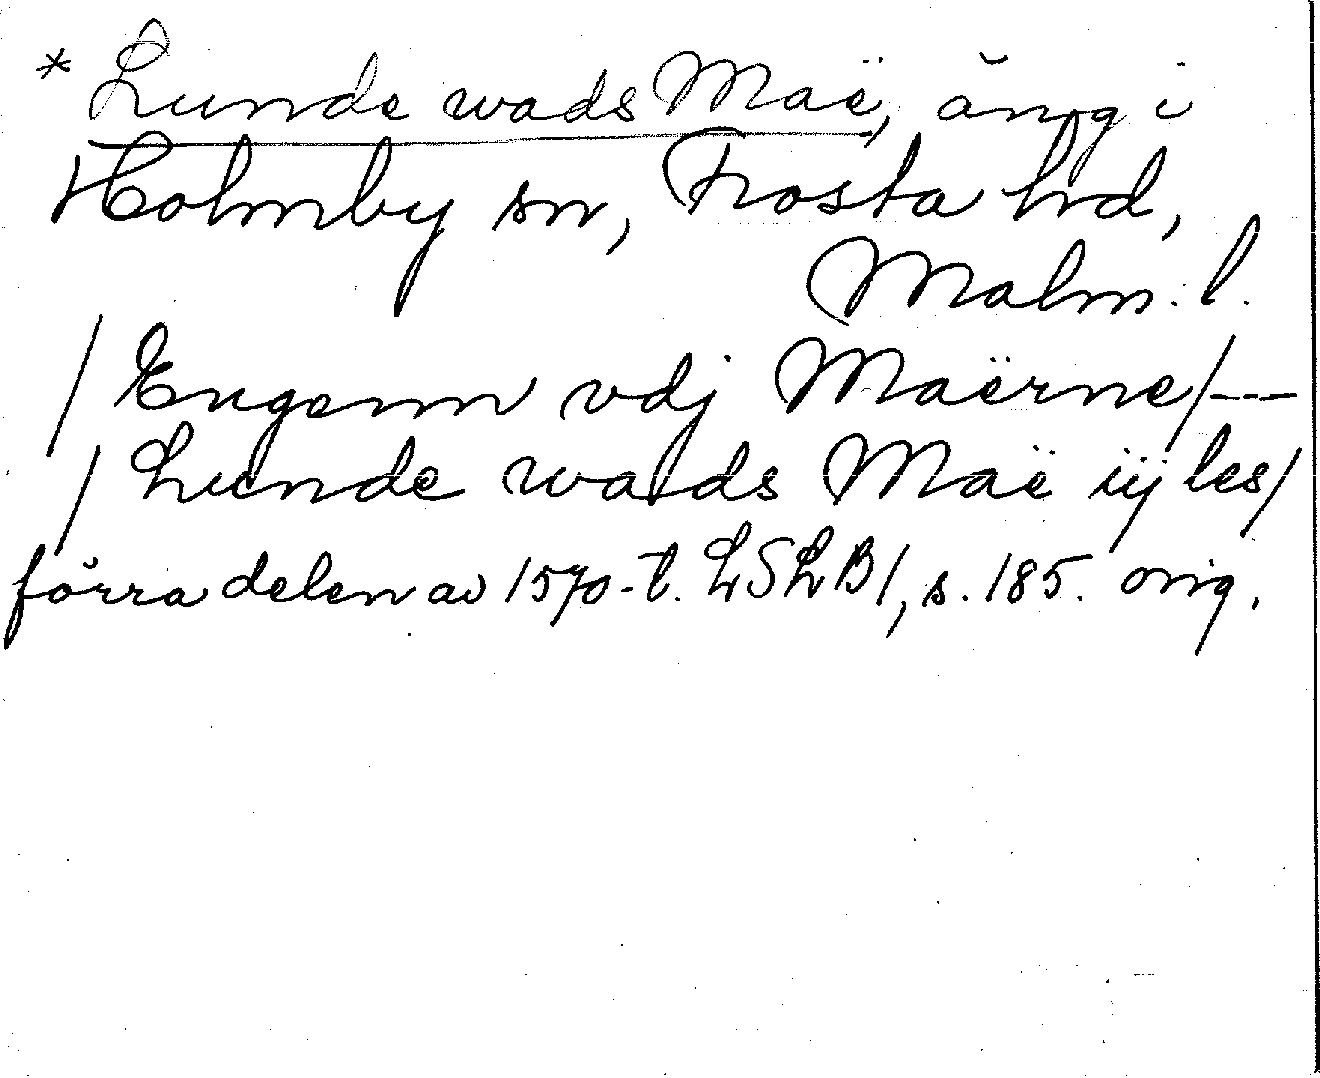 * Lunde wads Maë, äng i
Holmby sn, Frosta hd,
Malm. l.
/ Engenn vdj Maërne / ---
/ Lunde wads Maë iÿ les /
förra delen av 1570-t. LSLB1, s. 185. orig.